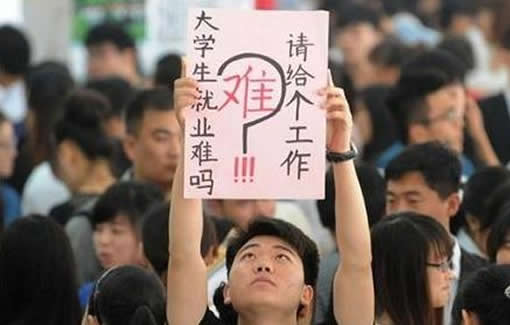 大学生就业难吗
难？!!!
请给个工作